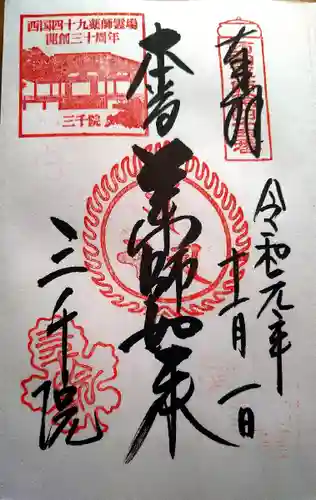 奉拝
令和元年
十二月一日
本尊
薬師如来
三千院
西国四十九薬師霊場
開創三十周年
三千院